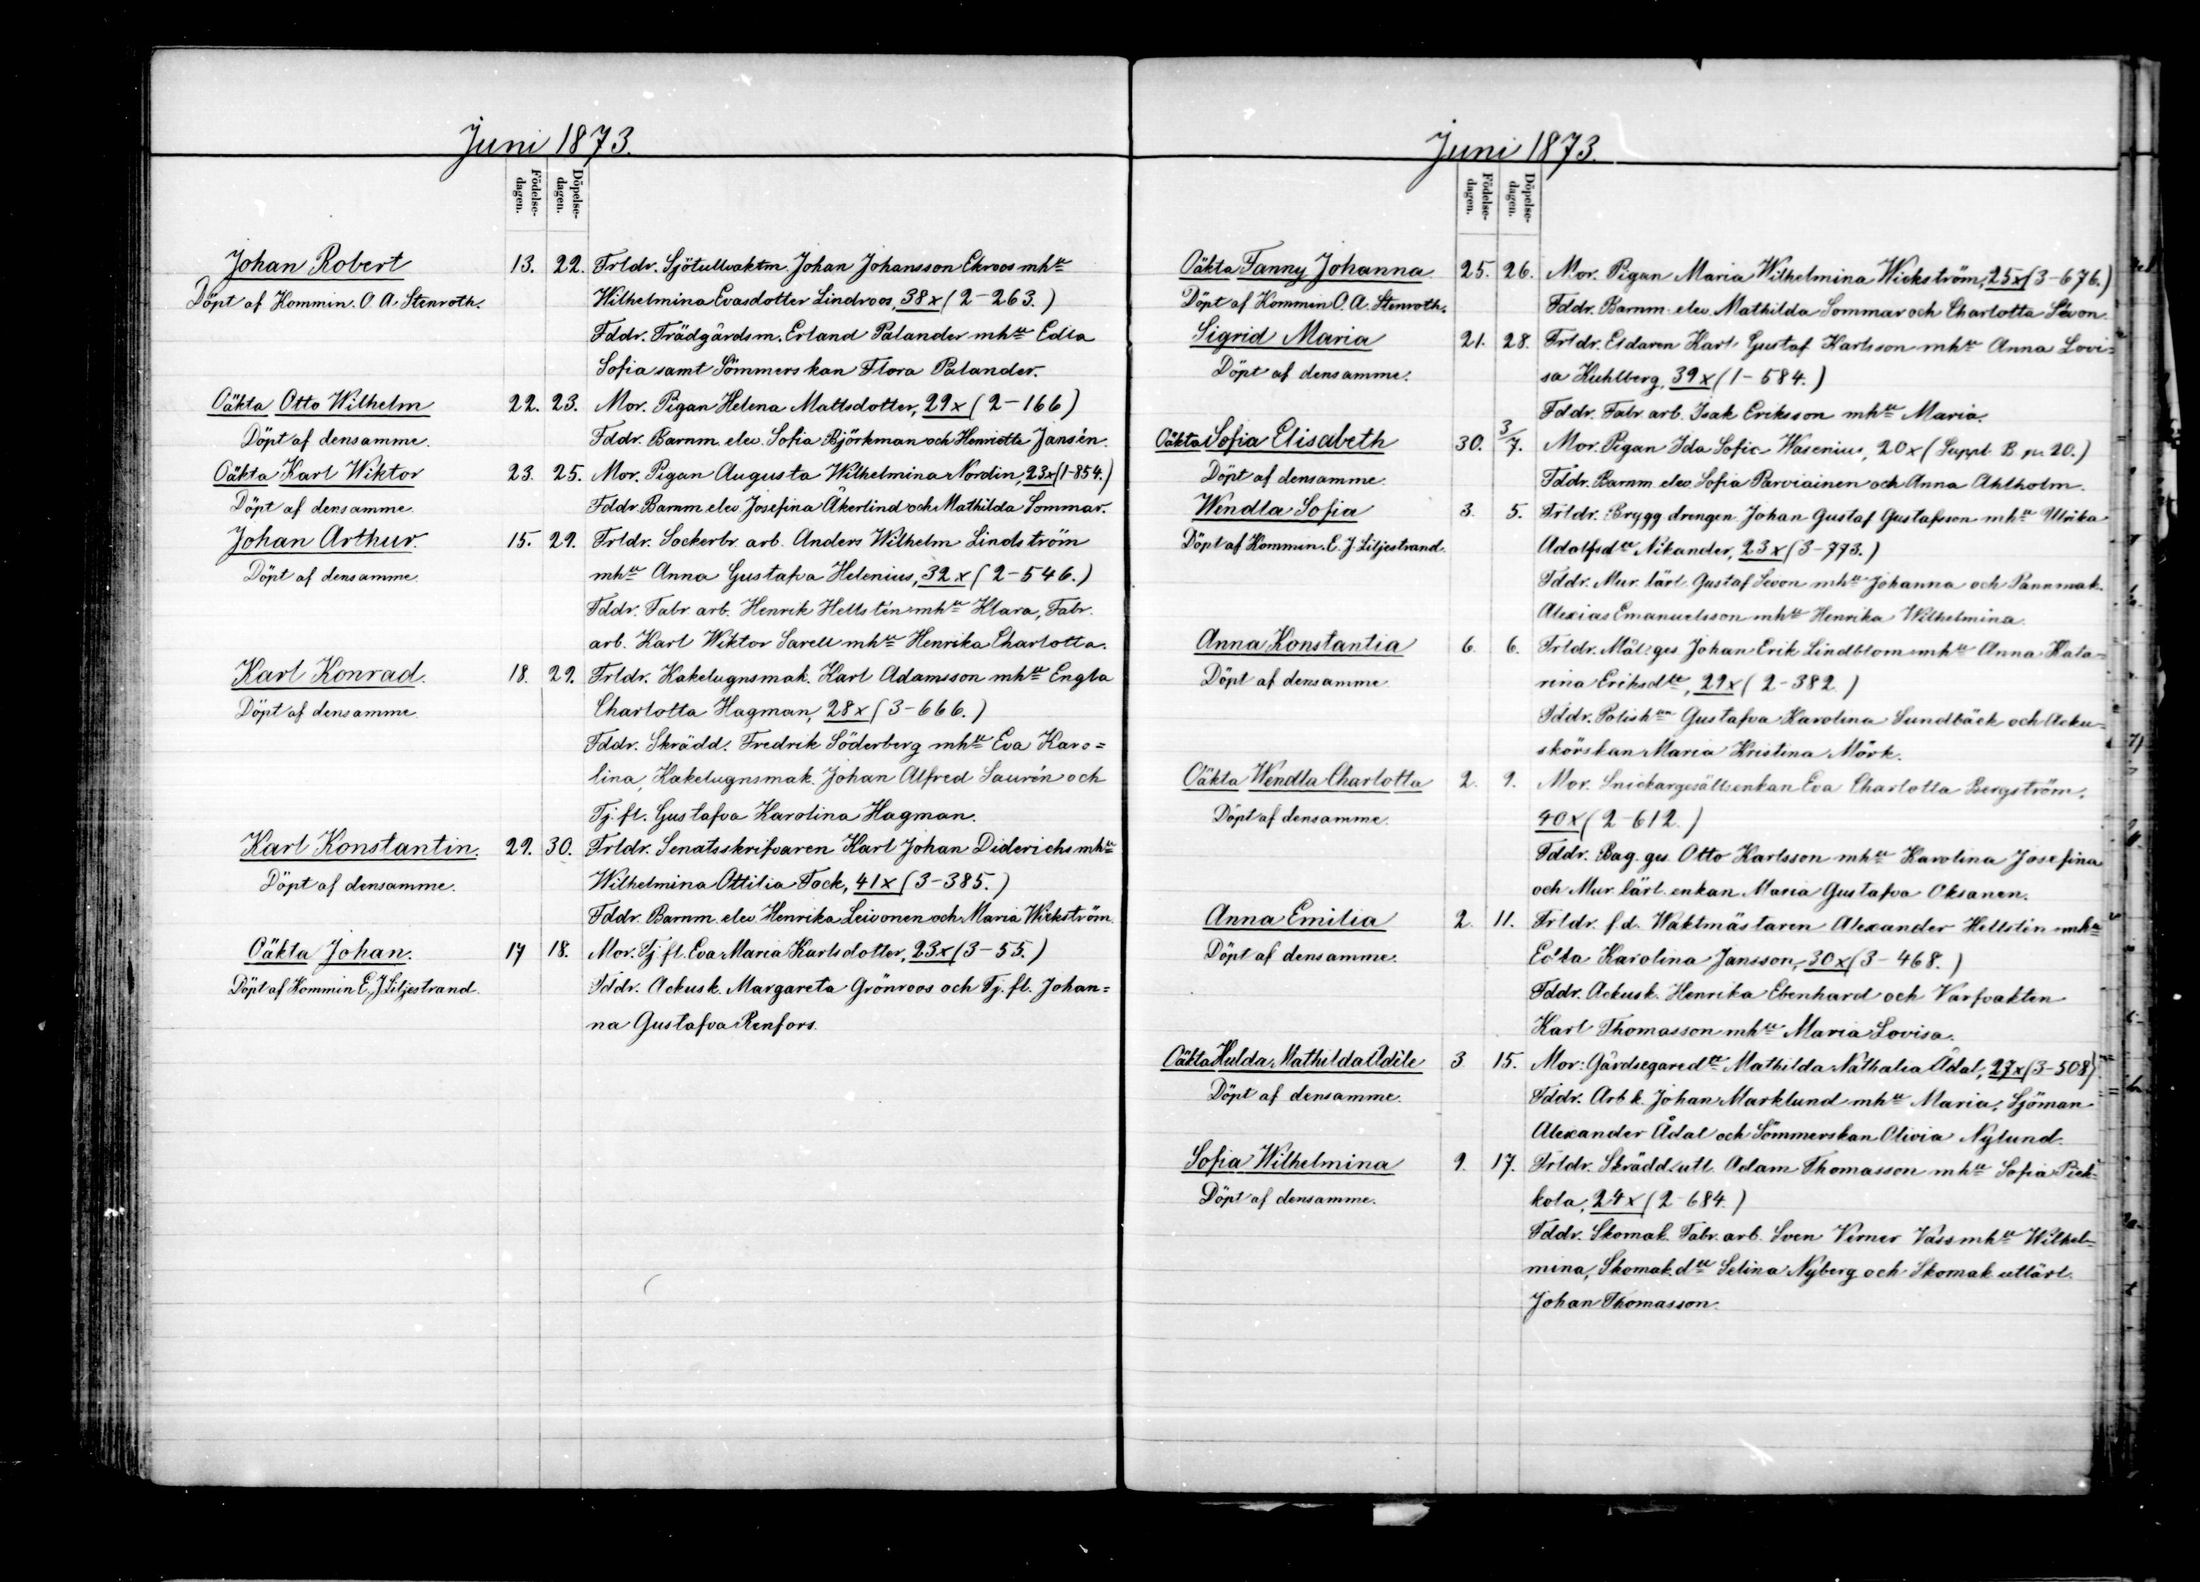 Juni 1873.
Födelse-
dagen.
Döpelse-
dagen.
Johan Robert 13. 22. Frldr. Sjötullvaktm. Johan Johansson Ekroos mhu
Döpt af Kommin. O. A. Stenroth. Wilhelmina Evasdotter Lindroos, 38 x (2-263.)
Fddr. Trädgårdsm. Erland Palander mhu Edla
Sofia samt Sömmerskan Flora Palander.
Oäkta Otto Wilhelm 22. 23. Mor. Pigan Helena Mattsdotter, 29 x (2-166)
Döpt af densamme. Fddr. Barnm. elev. Sofia Björkman och Henrietta Jansén.
Oäkta Karl Wiktor 23. 25. Mor. Pigan Augusta Wilhelmina Nordin, 23 x (1-854.)
Döpt af densamme. Fddr. Barnm. elev. Josefina Åkerlind och Mathilda Sommar.
Johan Arthur. 15. 29. Frldr. Sockerbr. arb. Anders Wilhelm Lindström
Döpt af densamme. mhu Anna Gustafva Helenius, 32 x (2-546.)
Fddr. Fabr. arb. Henrik Hellstén mhu Klara, Fabr.
arb. Karl Wiktor Sarell mhu Henrika Charlotta.
Karl Konrad. 18. 29. Frldr. Kakelugnsmak. Karl Adamsson mhu Engla
Döpt af densamme. Charlotta Hagman, 28 x (3-666.)
Fddr. Skrädd. Fredrik Söderberg mhu Eva Karo=
lina, Kakelugnsmak. Johan Alfred Saurén och
Tj. fl. Gustafva Karolina Hagman.
Karl Konstantin. 29. 30. Frldr. Senatsskrifvaren Karl Johan Diderichs mhu
Döpt af densamme. Wilhelmina Ottilia Fock, 41 x (3-385.)
Fddr. Barnm. elev. Henrika Leivonen och Maria Wickström.
Oäkta Johan. 17 18. Mor. Tj. fl. Eva Maria Karlsdotter, 23 x (3-55.)
Döpt af Kommin E. J. Liljestrand. Fddr. Ackusk. Margareta Grönroos och Tj. fl. Johan=
na Gustafva Renfors.
Juni 1873.
Födelse-
dagen.
Döpelse-
dagen.
Oäkta Fanny Johanna 25. 26. Mor. Pigan Maria Wilhelmina Wickström, 25 x (3-676.)
Döpt af Kommin O. A. Stenroth. Fddr. Barnm. elev. Mathilda Sommar och Charlotta Sévon.
Sigrid Maria 21. 28. Frldr. Eldaren Karl Gustaf Karlsson mhu Anna Lovi=
Döpt af densamme. sa Kuhlberg, 39 x (1-584.)
Fddr. Fabr. arb. Isak Eriksson mhu Maria.
Oäkta Sofia Elisabeth 30. 3/7. Mor. Pigan Ida Sofia Wasenius, 20 x (Suppl. B. p. 20.)
Döpt af densamme. Fddr. Barnm. elev. Sofia Parviainen och Anna Ahlholm.
Wendla Sofia 3. 5. Frldr. Bryggdrengen Johan Gustaf Gustafsson mhu Ulrika
Döpt af Kommin. E. J. Liljestrand. Adolfsdtr Nikander, 23 x (3-773.)
Fddr. Mur. lärl. Gustaf Sevon mhu Johanna och Pannmak.
Alexias Emanuelsson mhu Henrika Wilhelmina.
Anna Konstantia 6. 6. Frldr. Mål. ges. Johan Erik Lindblom mhu Anna Kata=
Döpt af densamme. rina Eriksdtr, 29 x (2-382.)
Fddr. Polish:an Gustafva Karolina Sundbäck och Acku=
skörskan Maria Kristina Mörk.
Oäkta Wendla Charlotta 2. 9. Mor. Snickargesällsenkan Eva Charlotta Bergström,
Döpt af densamme. 40 x (2-612.)
Fddr. Bag. ges. Otto Karlsson mhu Karolina Josefina
och Mur. lärl. enkan Maria Gustafva Oksanen.
Anna Emilia 2. 11. Frldr. f.d. Waktmästaren Alexander Hellstén mhu
Döpt af densamme. Edla Karolina Jansson, 30 x (3-468.)
Fddr. Ackusk. Henrika Ebenhard och Varfvakten
Karl Thomasson mhu Maria Lovisa.
Oäkta Hulda Mathilda Adéle 3 15. Mor: Gårdsegaredtr Mathilda Nathalia Ådal, 27 x (3-508)
Döpt af densamme. Fddr. Arb. k. Johan Marklund mhu Maria, Sjöman
Alexander Ådal och Sömmerskan Olivia Nylund.
Sofia Wilhelmina 9. 17. Frldr. Skrädd. utl. Adam Thomasson mhu Sofia Piek=
Döpt af densamme. kola, 24 x (2-684.)
Fddr. Skomak. Fabr. arb. Sven Verner Vass mhu Wilhel=
mina, Skomak. dtr Selina Nyberg och Skomak. utlärl.
Johan Thomasson.